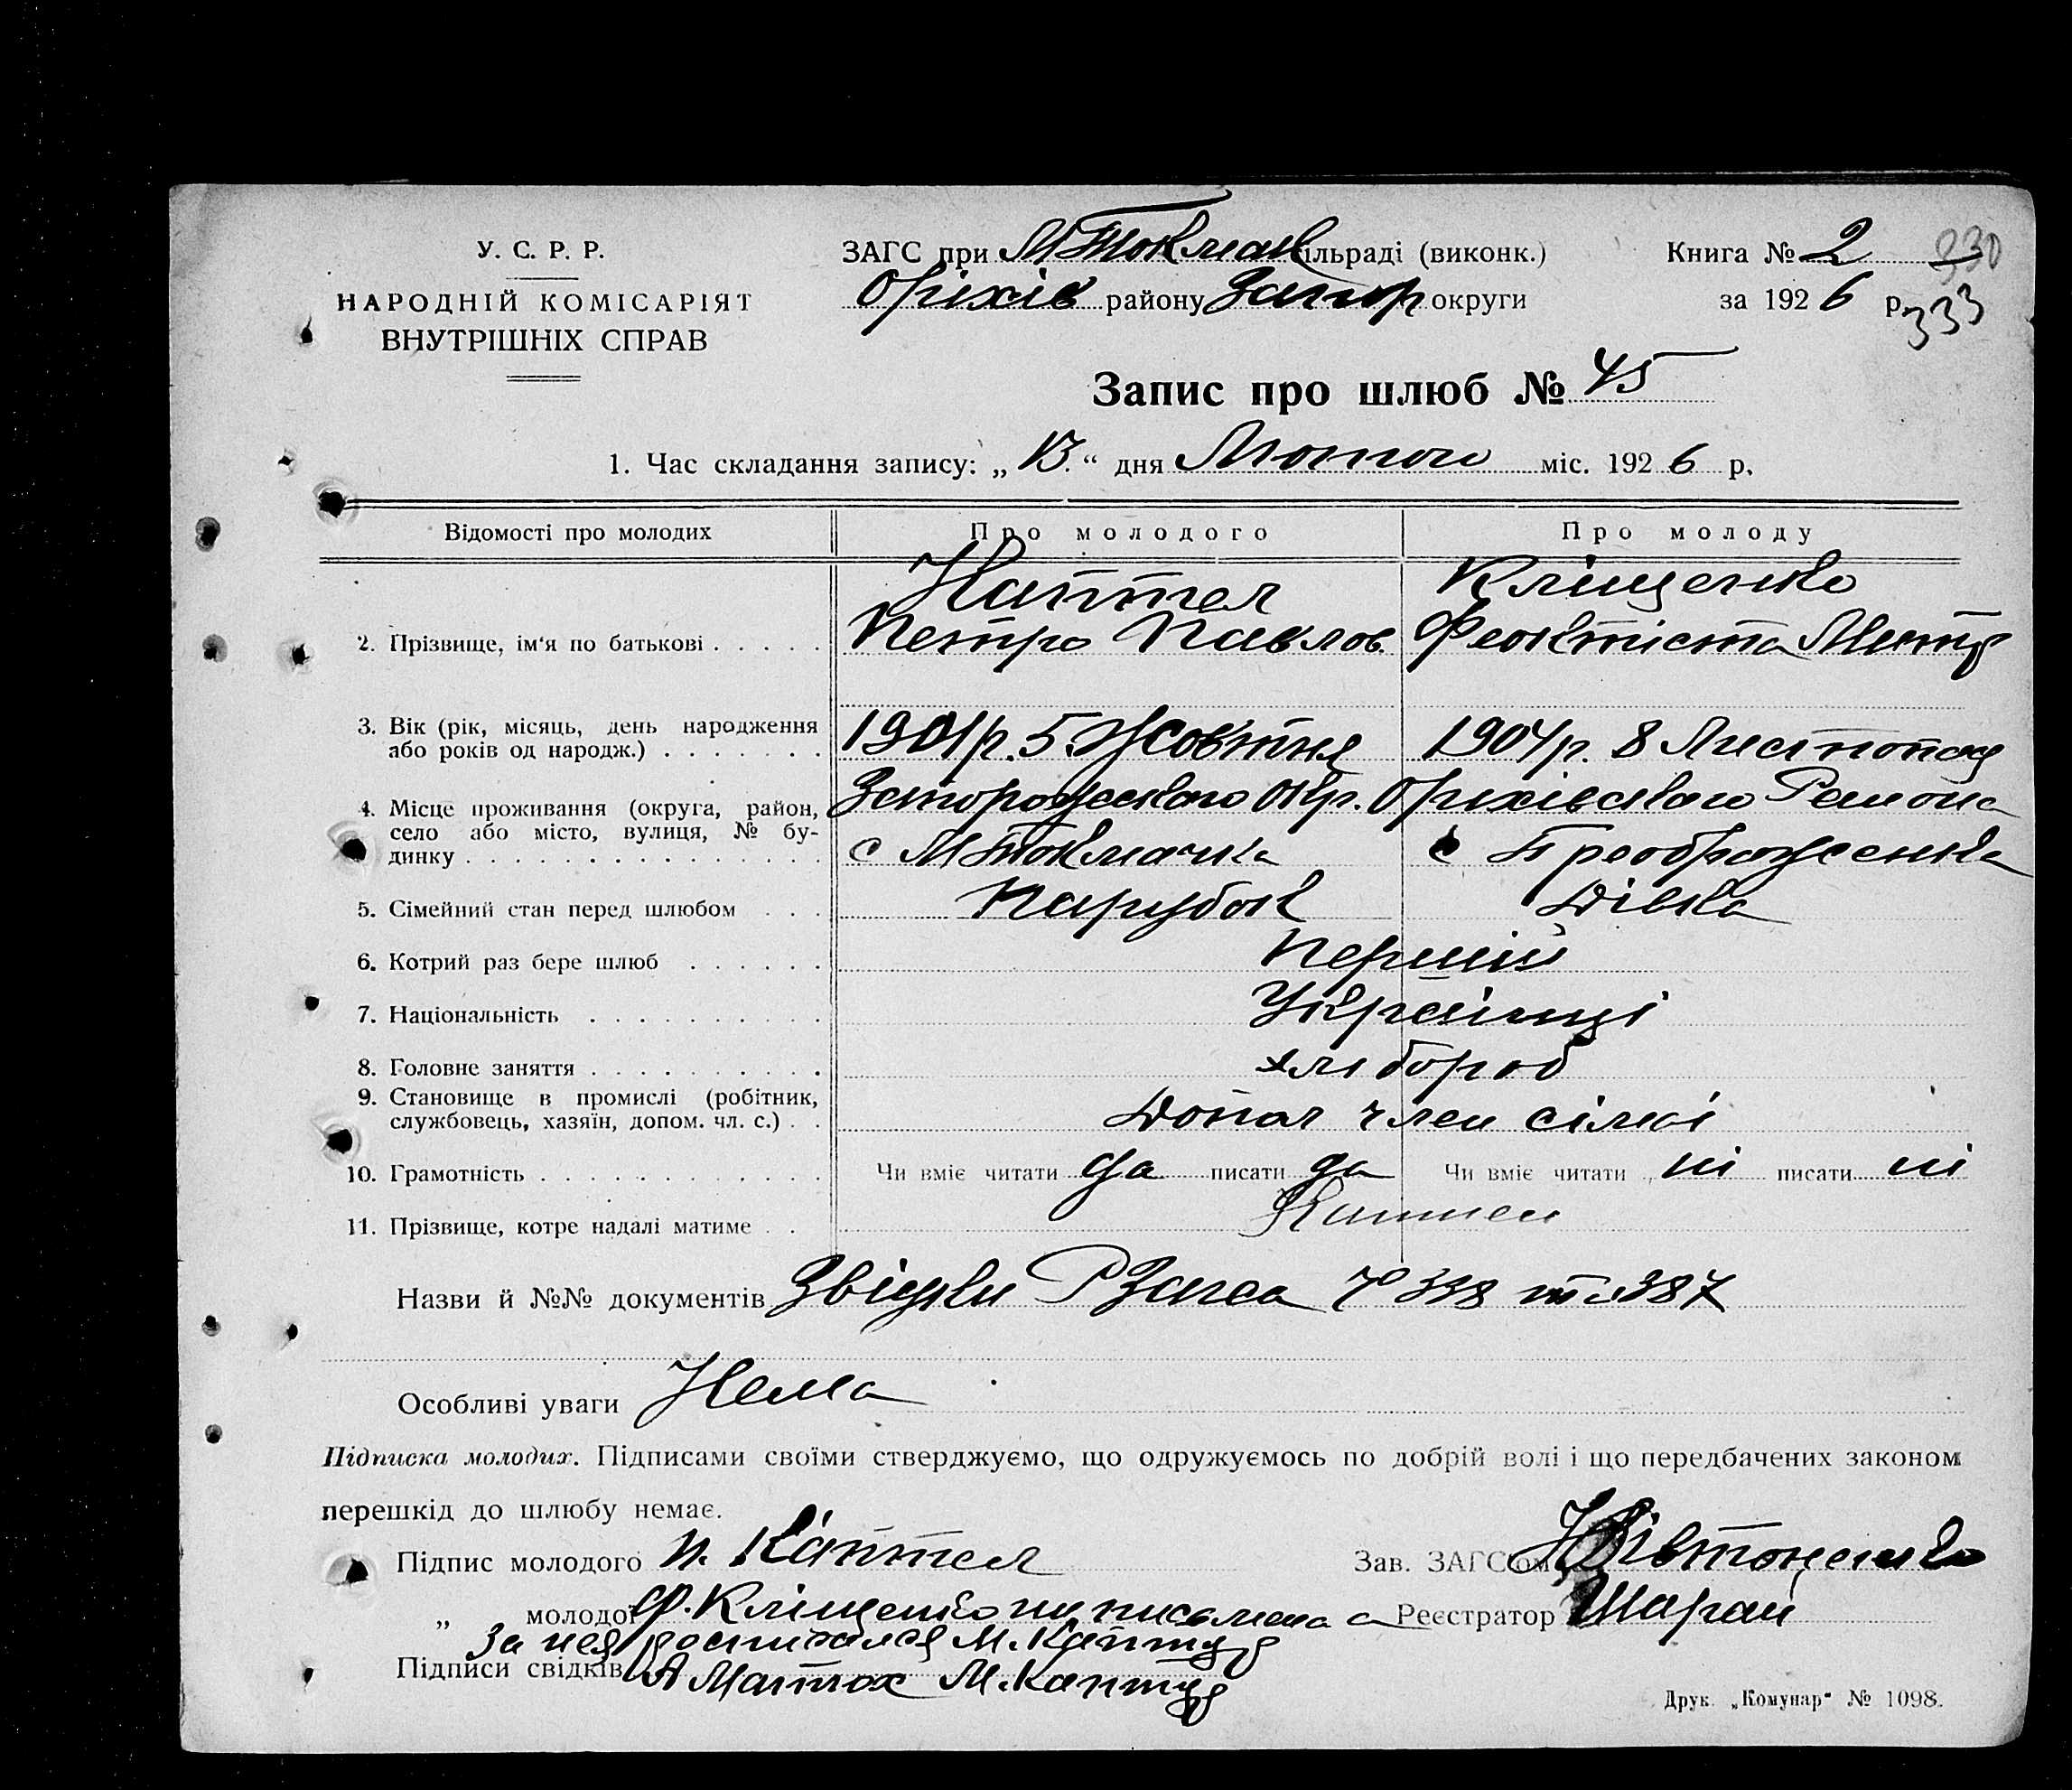 У. С. Р. Р.
НАРОДНІЙ КОМІСАРІЯТ
ВНУТРІШНІХ СПРАВ
ЗАГС при МТокмач ільраді (виконк.)
Оріхів району Запор округи
Книга № 2 330
за 1926 р. 333
Запис про шлюб № 45
1. Час складання запису: „13.“ дня Лютого міс. 1926 р.
Відомості про молодих
Про молодого
Про молоду
2. Прізвище, ім'я по батькові
Каптел
Петро Павлов.
Кліщенко
Феоктіста Митр
3. Вік (рік, місяць, день народження
або років од народж.)
1901р. 5 Жовтня
1904р. 8 Листопад
4. Місце проживання (округа, район,
село або місто, вулиця, № бу-
динку
Запорожського Окр. Оріхівського Района
с МТокмачка
с Преображенка
5. Сімейний стан перед шлюбом
Парубок
Дівка
6. Котрий раз бере шлюб
Перший
7. Національність
Українці
8. Головне заняття
хлібороб
9. Становище в промислі (робітник,
службовець, хазяїн, допом. чл. с.)
Допом член сімї
10. Грамотність
Чи вміє читати да писати да
Чи вміє читати ні писати ні
11. Прізвище, котре надалі матиме
Назви й №№ документів Звідки РЗагса № 338 та 387
Особливі уваги Нема
Підписка молодих. Підписами своїми стверджуємо, що одружуємось по добрій волі і що передбачених законом
перешкід до шлюбу немає.
Підпис молодого П. Каптел
Зав. ЗАГС'ом
„ молодої Ф. Кліщенко ни письмена а
за нея росписался М. Каптур
Реєстратор Шарай
Підписи свідків А Матюх М. Каптур
Друк. „Комунар“ № 1098.